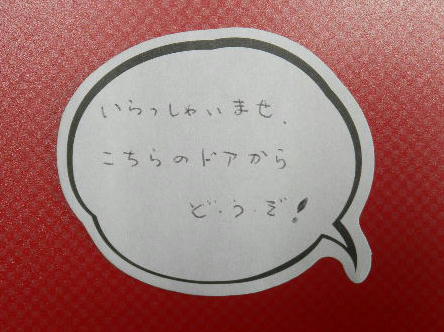 いらっしゃいませ.
こちらのドアから
ど・う・ぞ!